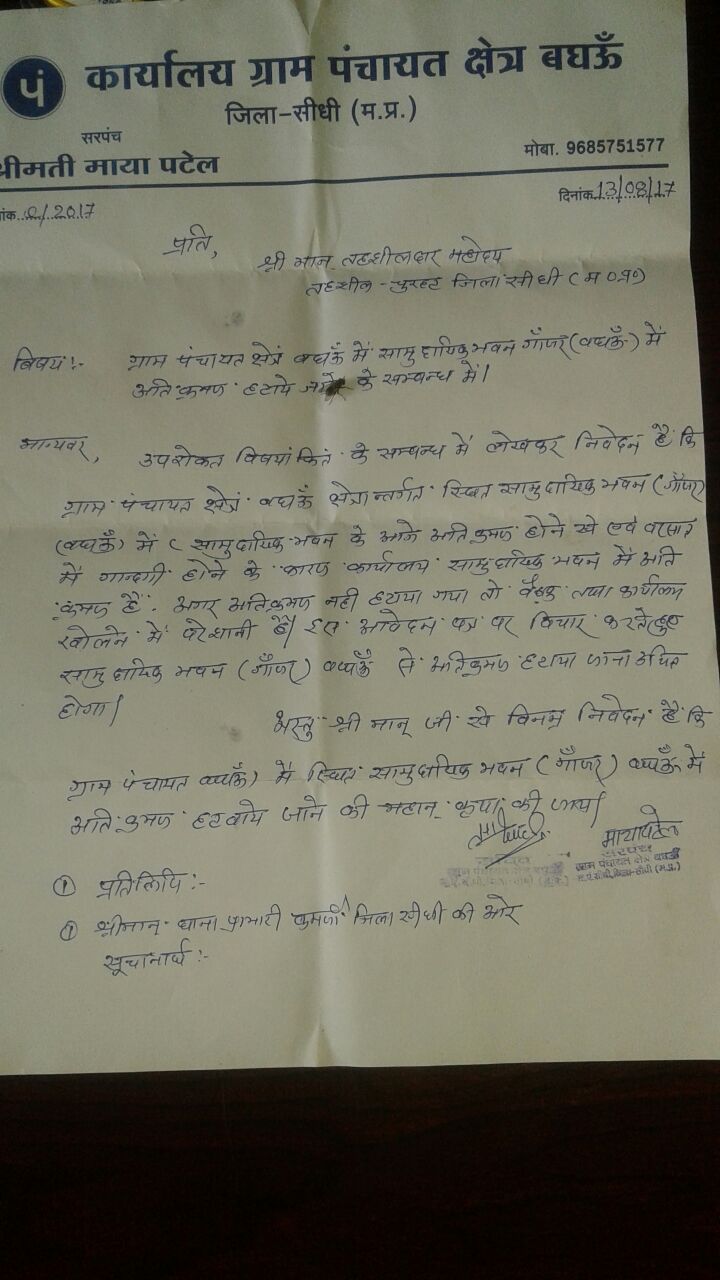 पं कार्यालय ग्राम पंचायत क्षेत्र बघऊँ
जिला-सीधी (म.प्र.)
सरपंच
श्रीमती माया पटेल
मोबा. 9685751577
दिनांक 13/08/17
/2017
प्रति,
श्री मान तहशीलदार महोदय
तहशील - चुरहट जिला सीधी (म०प्र०)
विषय:- ग्राम पंचायत क्षेत्र बघऊँ में सामुदायिक भवन गाँजर (बघऊँ) में
अतिक्रमण हटाये के सम्बन्ध में।
मान्यवर, उपरोक्त विषयांकित के सम्बन्ध में लेखकर निवेदन है कि
ग्राम पंचायत क्षेत्र बघऊँ क्षेत्रान्तर्गत स्थित सामुदायिक भवन (गाँजर)
(बघऊँ) में ( सामुदायिक भवन के आगे अतिक्रमण होने से एवं बरसात
में गन्दगी होने के कारण कार्यालय सामुदायिक भवन में अति
क्रमण है. अगर अतिक्रमण नही हटाया गया तो बैठक तथा कार्यालय
खोलने में परेशानी है। इस आवेदन पत्र पर विचार करते हुए
सामुदायिक भवन (गाँजर) बघऊँ से अतिक्रमण हटाया जाना उचित
होगा।
अस्तु श्री मान् जी से विनम्र निवेदन है कि
ग्राम पंचायत बघऊँ) में स्थित सामुदायिक भवन (गाँजर) बघऊँ में
अतिक्रमण हटवाये जाने की महान कृपा की जाय।
माया पटेल
सरपंच
ग्राम पंचायत क्षेत्र बघऊँ
जिला-सीधी (म.प्र.)
① प्रतिलिपि:-
① श्रीमान् थाना प्रभारी जिला सीधी की ओर
सूचनार्थ:-